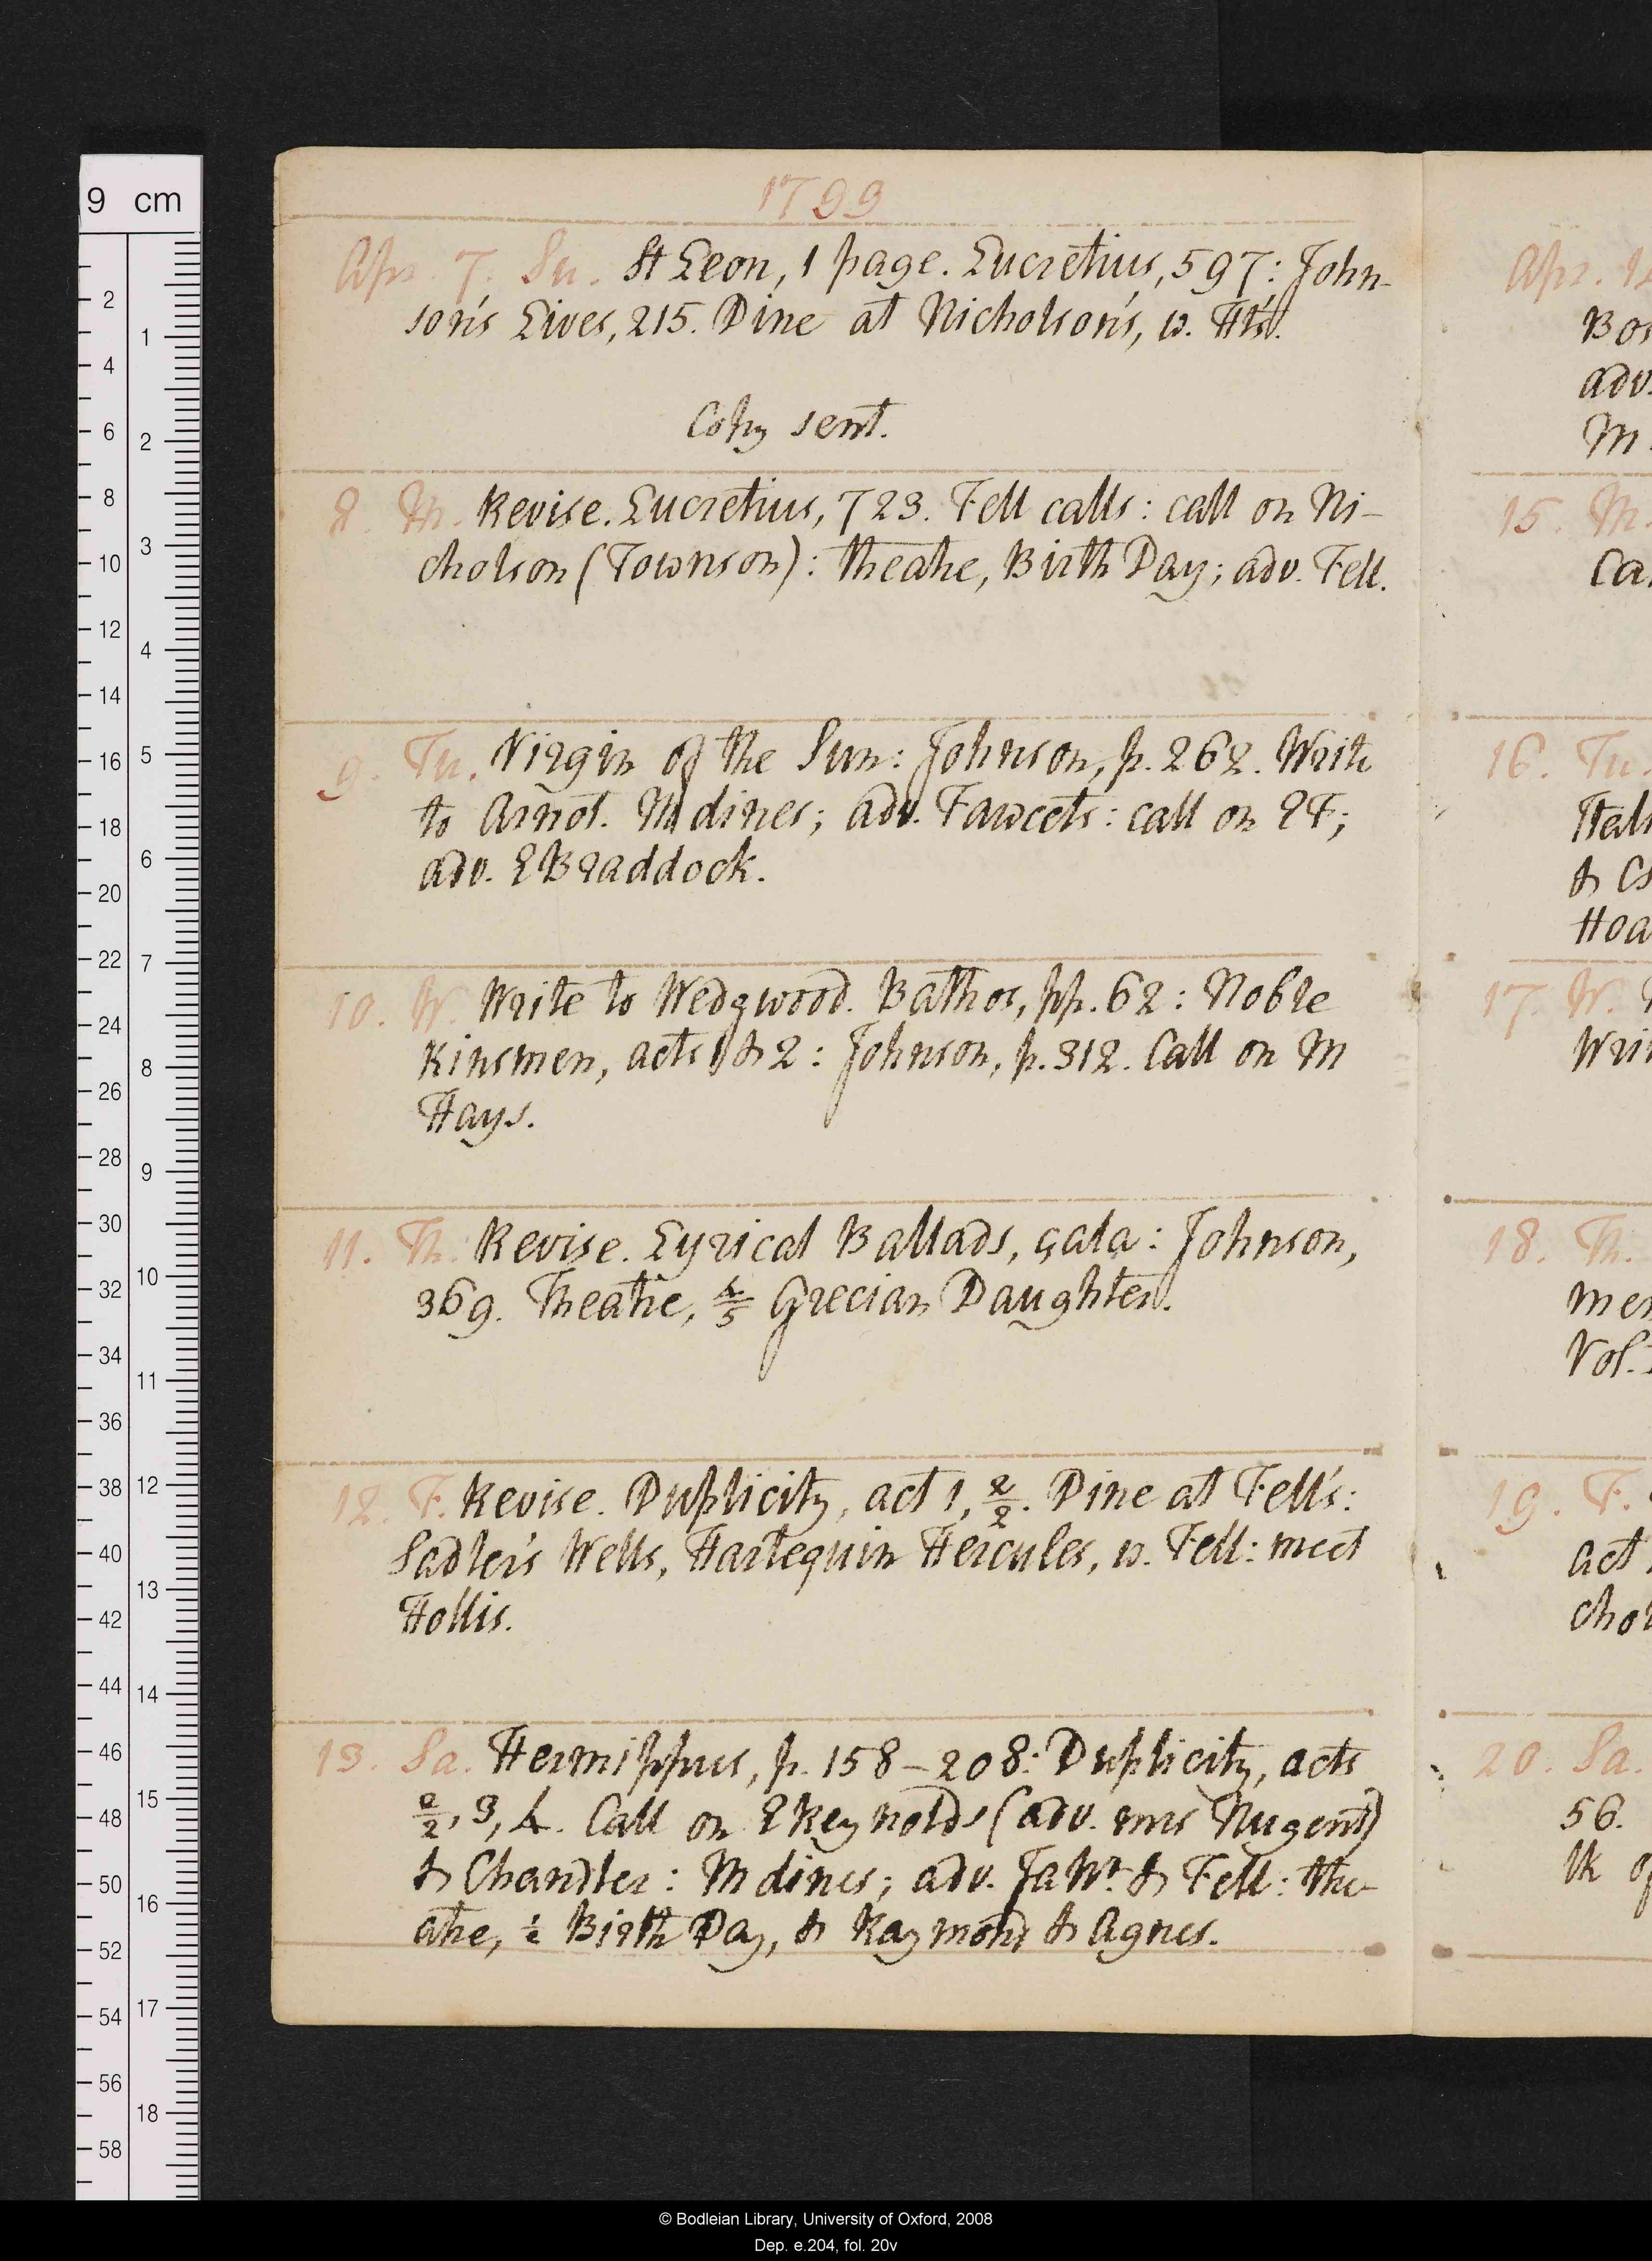 1799
Apr. 7. Su. St Leon, 1 page. Lucretius, 597: John-
son's Lives, 215. Dine at Nicholson's, w. Ht's.
Copy sent.
8. M. Revise. Lucretius, 723. Fell calls: call on Ni-
cholson (Townson): theatre, Birth Day; adv. Fell.
9. Tu. Virgin of the Sun: Johnson, p. 262. Write
to Arnot. M dines; adv. Fawcets: call on PF;
adv. Braddock.
10. W. Write to Wedgwood. Bathos, pp. 62: Noble
Kinsmen, acts 1 & 2: Johnson, p. 312. Call on M
Hays.
11. Th. Revise. Lyrical Ballads, çala: Johnson,
369. Theatre, 4/5 Grecian Daughter.
12. F. Revise. Duplicity, act 1, 2/2. Dine at Fell's:
Sadler's Wells, Harlequin Hercules, w. Fell: meet
Hollis.
13. Sa. Hermippus, p. 158-208: Duplicity, acts
2/2, 3, 4. Call on Reynolds (adv. mrs Nugent)
& Chandler: M dines; adv. & Fell: the-
atre, 1/2 Birth Day, & Raymond & Agnes.
Apr. 14
Bos
adv.
M
15. M.
Ca
16. Tu.
Ital
& Cs
Hoa
17. W.
Wri
18. Th.
mer
Vol.
19. F.
act
chol
20. Sa.
56.
9 cm
2
4
6
8
10
12
14
16
18
20
22
24
26
28
30
32
34
36
38
40
42
44
46
48
50
52
54
56
58
1
2
3
4
5
6
7
8
9
10
11
12
13
14
15
16
17
18
© Bodleian Library, University of Oxford, 2008
Dep. e.204, fol. 20v